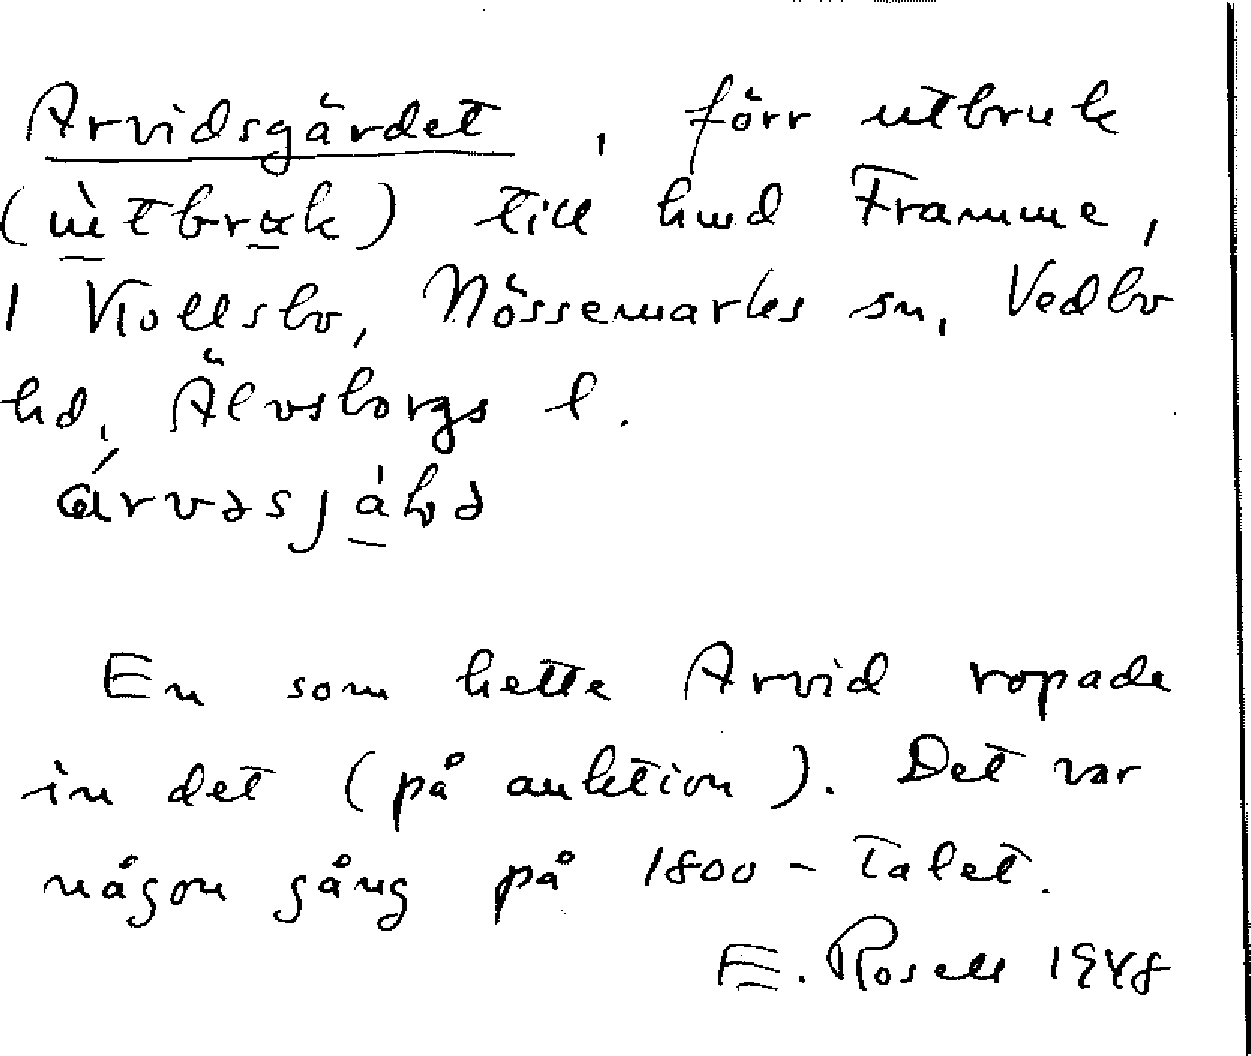 Arvidsgärdet, förr utbruk
(ùtbruk) till hmd Framme,
1 Kollsbo, Nössemarks sn, Vedbo
hd, Älvsborgs l.
árvəsjàḷə
En som hette Arvid ropade
in det (på auktion). Det var
någon gång på 1800-talet.
E. Rosell 1948